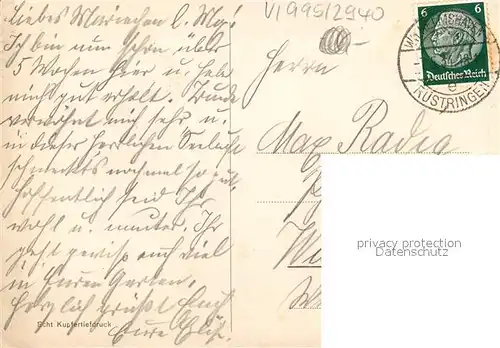 Liebes Mariechen l. Max!
Ich bin nun schon über
5 Wochen hier u. habe
mich gut erholt.
verwöhnt mich sehr u.
in dieser herrlichen Seeluft
schmeckts nochmal so gut.
Hoffentlich seid Ihr
wohl u. munter. Ihr
geht gewiss auch viel
in Euren Garten.
Herzlich grüßt Euch
Eure
Echt Kupfertiefdruck
VI99512940
Herrn
Max Radig
6 6
Deutsches Reich
RÜSTRINGEN
privacy protection